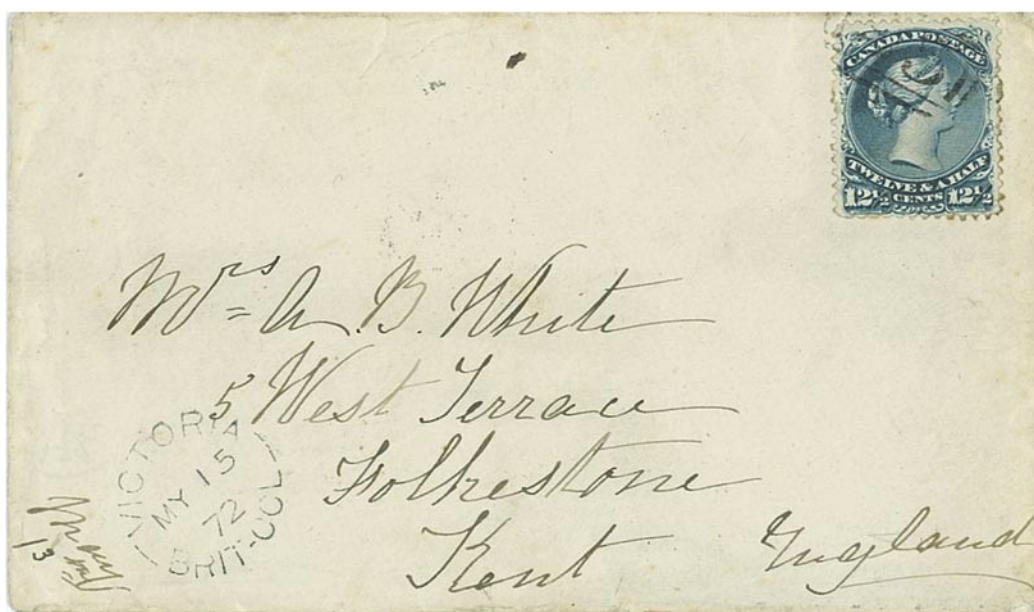 CANADA POSTAGE
TWELVE & A HALF
12½ CENTS 12½
Mrs A. B. White
5 West Terrace
Folkestone
Kent England
VICTORIA
MY 15
72
BRIT-COL
13